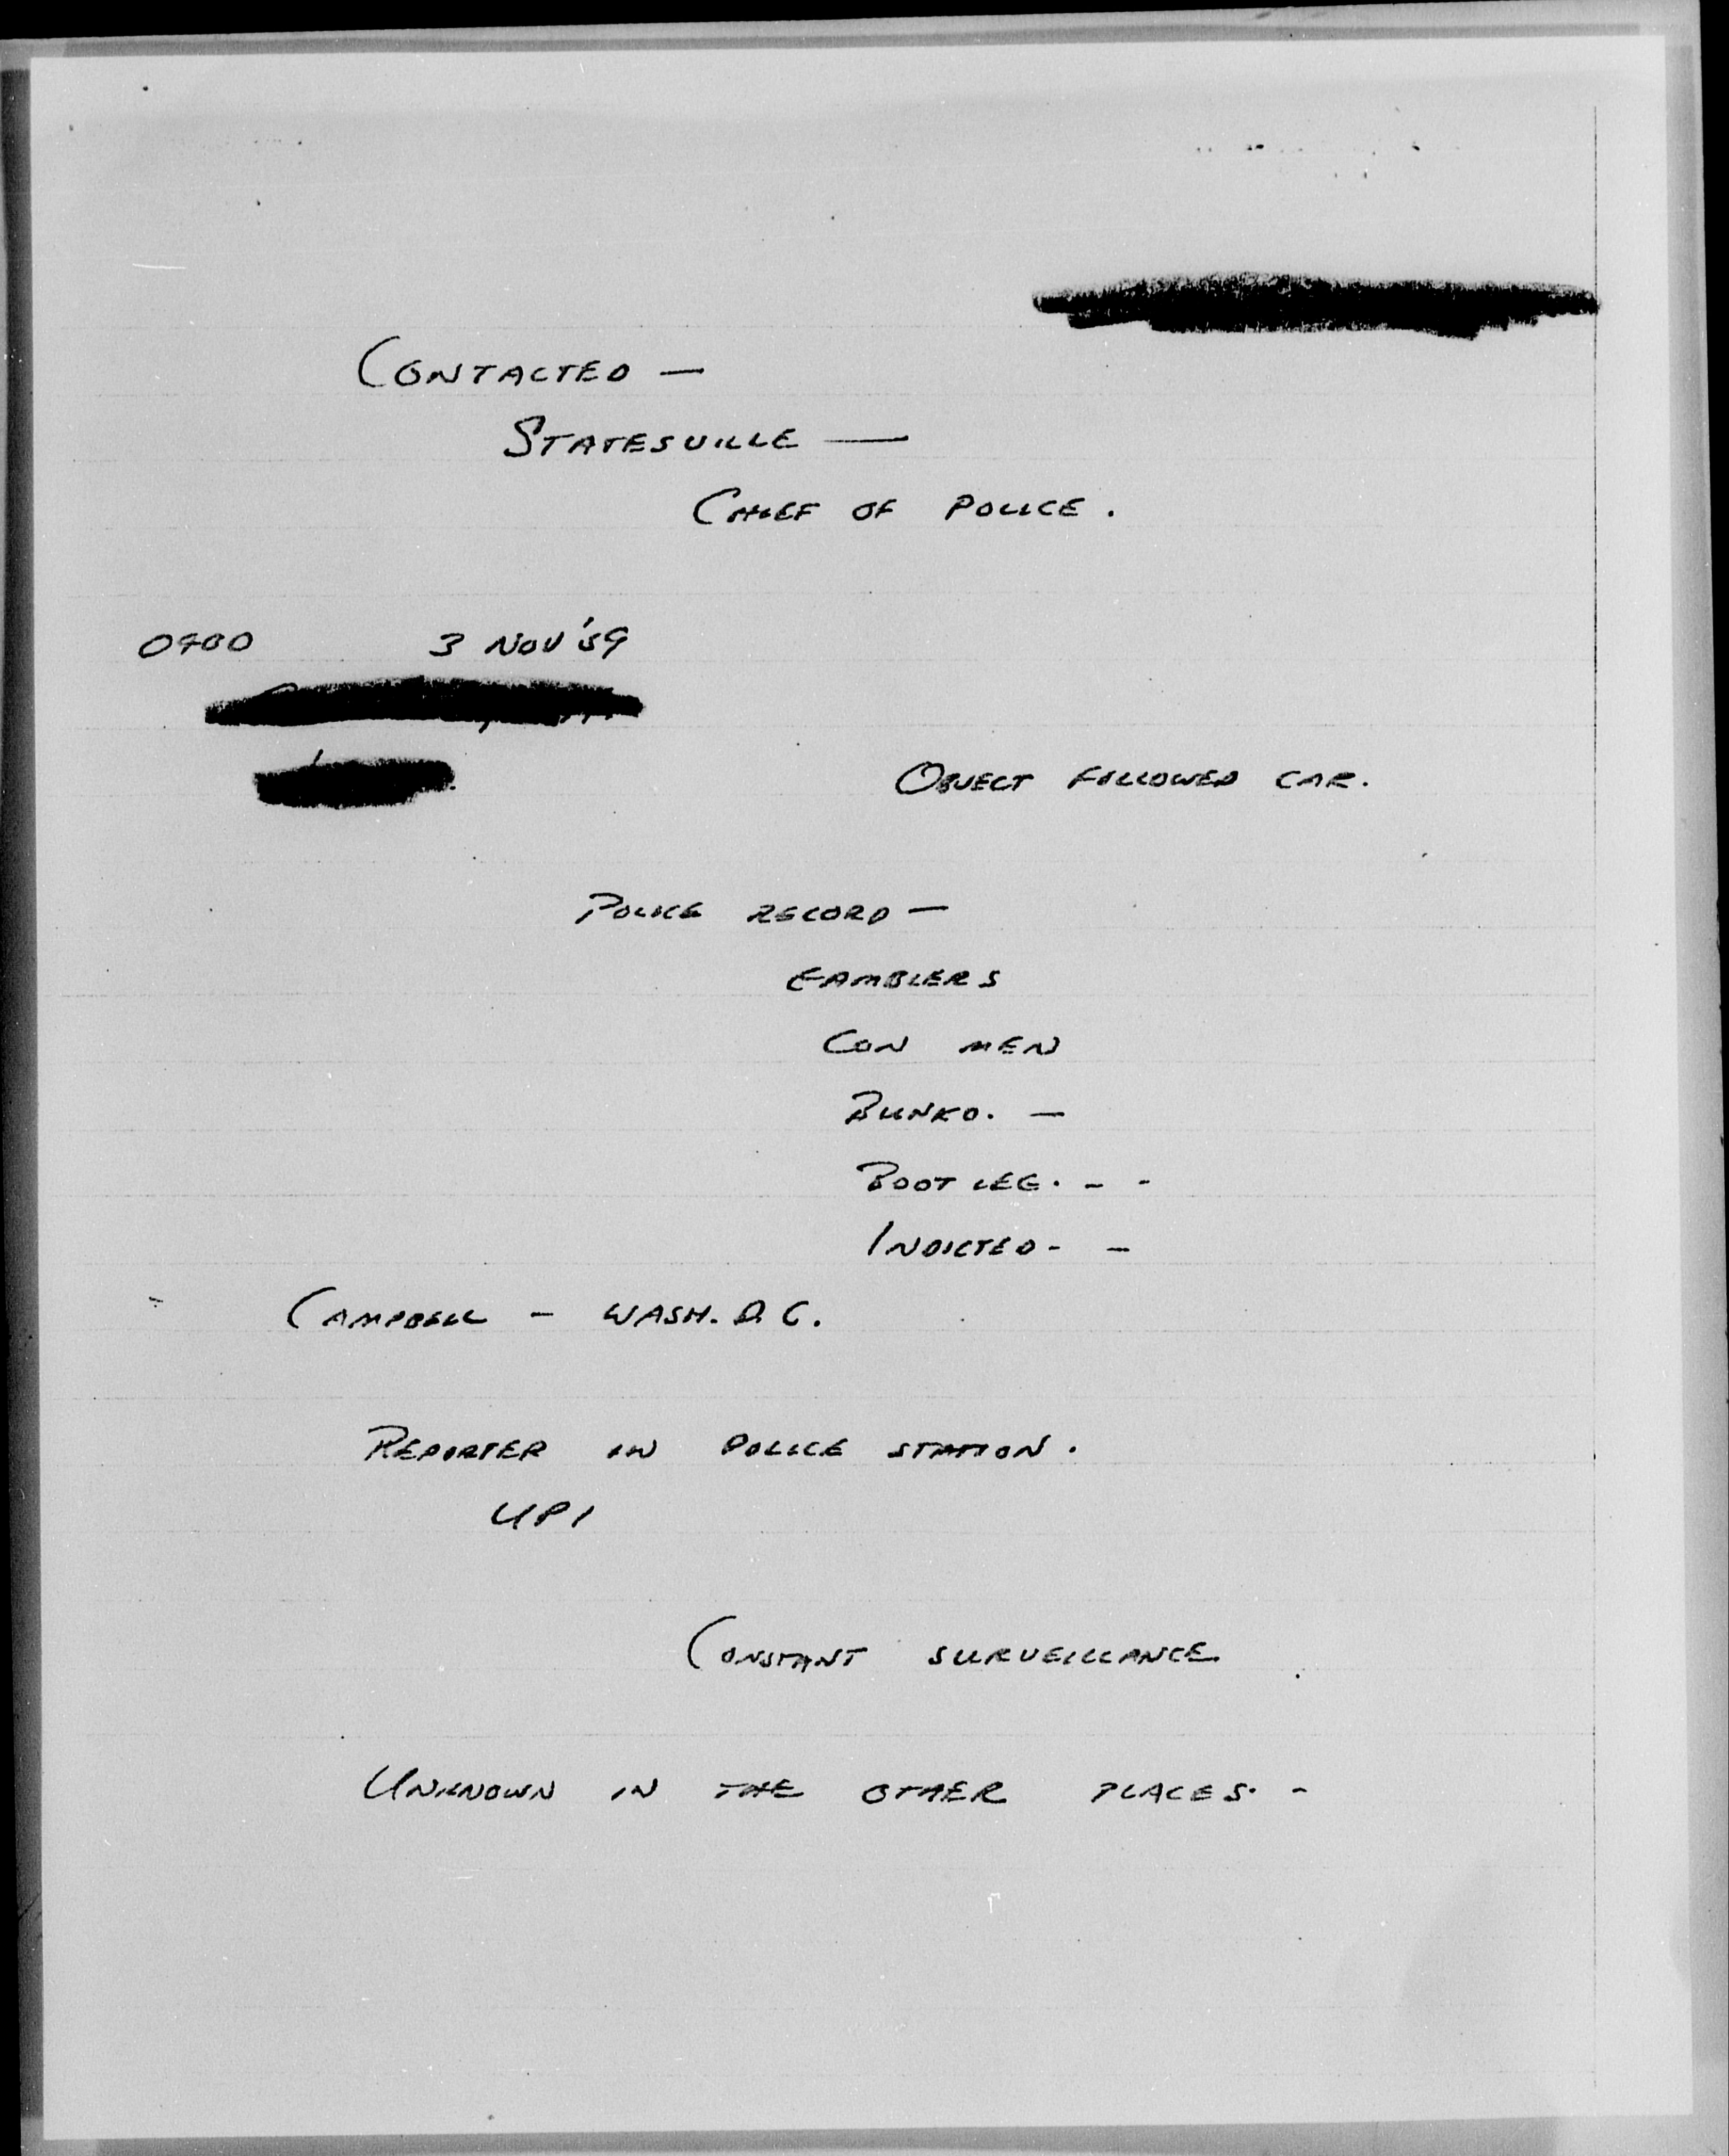 CONTACTED —
STATESVILLE —
CHIEF OF POLICE.
3 NOV '59
OBJECT FOLLOWED CAR.
POLICE RECORD —
GAMBLERS
CON MEN
BUNKO. —
BOOT LEG. - -
INDICTED - -
CAMPBELL - WASH. D.C.
REPORTER IN POLICE STATION.
UPI
CONSTANT SURVEILLANCE
UNKNOWN IN THE OTHER PLACES. -